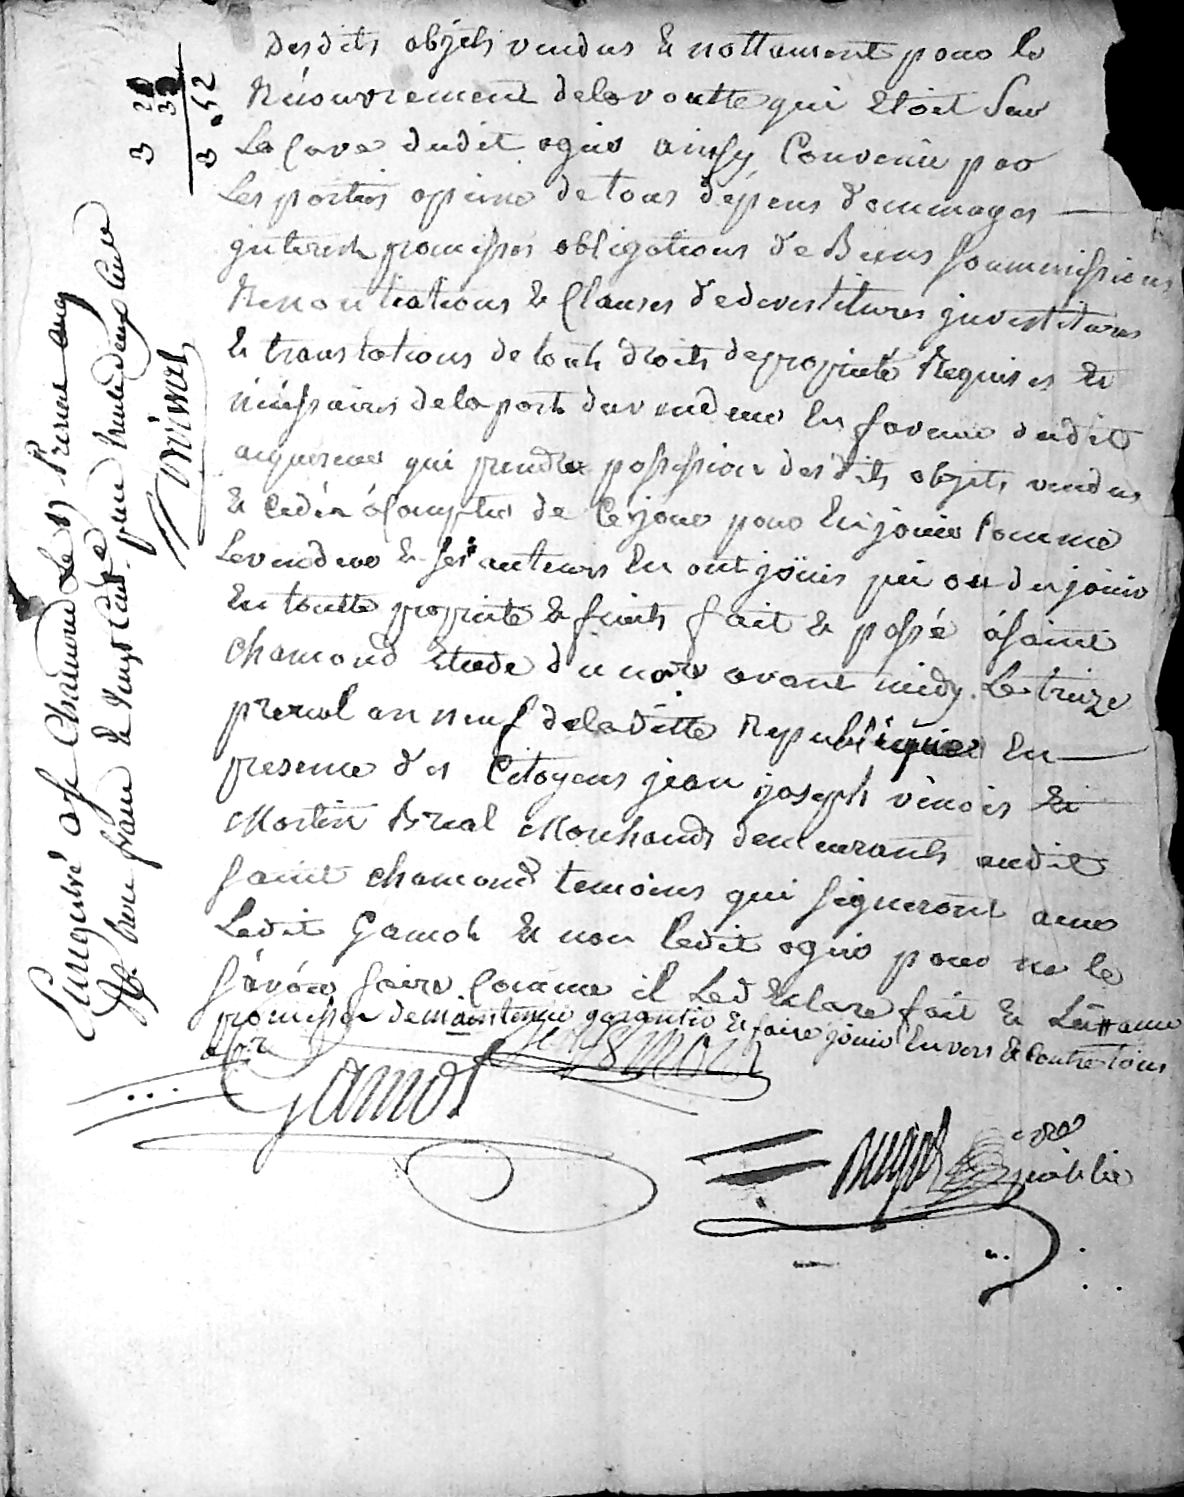 desdits objets vendus & nottament pour le
Récouvrement delavoutte qui Etoit Sur
La Cave dudit ogier ainsy Convenu par
Les parties apeine detous dépens dommages
jnterets promesses obligations de Biens soummissions
Renontiations & Clauses dedevestitures jnvestitures
& translations detouts droits depropriété Requises et
nécéssaires delapart duvendeur En faveur dudit
acquereur qui prendra possession desdits objets vendus
& cedés àCompter de Cejour pour Enjouir Comme
Levendeur & ses auteurs En ont joüis pû ou dû jouir
En toutte propriete & fruits fait & passé àSaint
chamond Etude du nore avant midy. Le treize
prerial an neuf deladitte Republique En
presence des Citoyens jean joseph vinois Et
Martin Brial Marchands demeurants audit
Saint chamond temoins qui signeront avec
Ledit Gamot & non Ledit ogier pour ne le
sàvoir faire Comme il Led Eclare fait & Lu avec
promesse demaintenir garantir & faire jouir Envers & Contre tous
Gamot
nore
public
Enregistré a St Chamond Le 17 Prerial an 9
Rr. trois francs & vingt Cent.
pour trente deux Centes
3 20
32
3.52